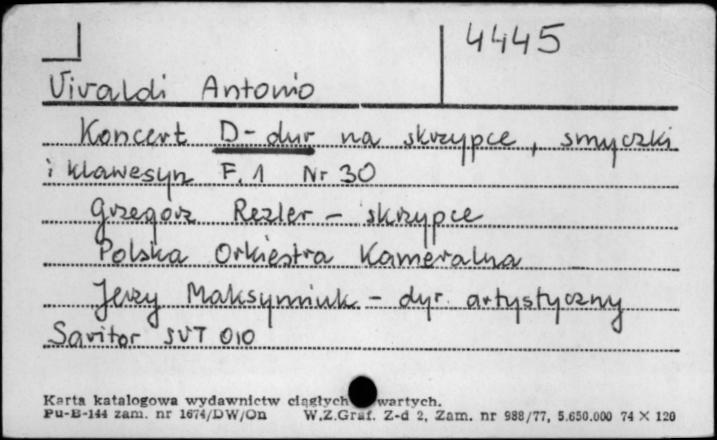 4445
Vivaldi Antonio
Koncert D-dur na skrzypce, smyczki
i klawesyn F. 1 Nr 30
Grzegorz Rezler - skrzypce
Polska Orkiestra Kameralna
Jerzy Maksymiuk - dyr. artystyczny
Savitor SVT 010
Karta katalogowa wydawnictw ciągłych wartych.
Pu-B-144 zam. nr 1674/DW/On W.Z.Graf. Z-d 2, Zam. nr 988/77, 5.650.000 74 X 120